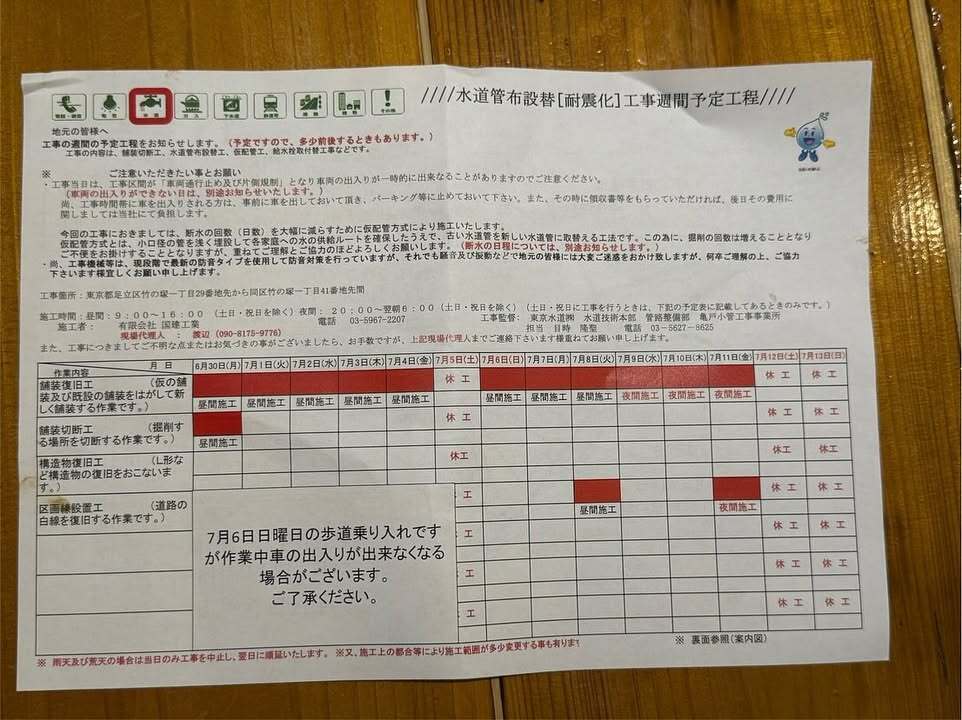 電話・通信 電気 水道 ガス 下水道 鉄道等 道路 建物 その他
////水道管布設替[耐震化]工事週間予定工程////
地元の皆様へ
工事の週間の予定工程をお知らせします。(予定ですので、多少前後するときもあります。)
工事の内容は、舗装切断工、水道管布設替工、仮配管工、給水栓取付替工事などです。
※ ご注意いただきたい事とお願い
・工事当日は、工事区間が「車両通行止め及び片側規制」となり車両の出入りが一時的に出来なくなることがありますのでご注意ください。
(車両の出入りができない日は、別途お知らせいたします。)
尚、工事時間帯に車を出入りされる方は、事前に車を出しておいて頂き、パーキング等に止めておいて下さい。また、その時に領収書等をもらっていただければ、後日その費用に
関しましては当社にて負担します。
今回の工事におきましては、断水の回数(日数)を大幅に減らすために仮配管方式により施工いたします。
仮配管方式とは、小口径の管を浅く埋設して各家庭への水の供給ルートを確保したうえで、古い水道管を新しい水道管に取替える工法です。この為に、掘削の回数は増えることとなり
ご不便をお掛けすることとなりますが、重ねてご理解とご協力のほどよろしくお願いします。(断水の日程については、別途お知らせします。)
・尚、工事機械等は、現段階で最新の防音タイプを使用して防音対策を行っていますが、それでも騒音及び振動などで地元の皆様には大変ご迷惑をおかけ致しますが、何卒ご理解の上、ご協力
下さいます様宜しくお願い申し上げます。
工事箇所:東京都足立区竹の塚一丁目29番地先から同区竹の塚一丁目41番地先間
施工時間:昼間:9:00～16:00 (土日・祝日を除く) 夜間:20:00～翌朝6:00 (土日・祝日を除く) (土日・祝日に工事を行うときは、下記の予定表に記載してあるときのみです。)
施工者: 有限会社 国建工業 電話 03-5967-2207 工事監督: 東京水道㈱ 水道技術本部 管路整備部 亀戸小管工事事業所
現場代理人 : 渡辺(090-8175-9776) 担当 目時 隆聖 電話 03-5627-8625
また、工事につきましてご不明な点またはお気づきの事がございましたら、お手数ですが、上記現場代理人までご連絡下さいます様重ねてお願い申し上げます。
月 日 作業内容 6月30日(月) 7月1日(火) 7月2日(水) 7月3日(木) 7月4日(金) 7月5日(土) 7月6日(日) 7月7日(月) 7月8日(火) 7月9日(水) 7月10日(木) 7月11日(金) 7月12日(土) 7月13日(日)
舗装復旧工 (仮の舗 休 工 休 工 休 工
装及び既設の舗装をはがして新
しく舗装する作業です。) 昼間施工 昼間施工 昼間施工 昼間施工 昼間施工 昼間施工 昼間施工 昼間施工 夜間施工 夜間施工 夜間施工
舗装切断工 (掘削す 休 工 休 工 休 工
る場所を切断する作業です。) 昼間施工
構造物復旧工 (L形な 休工 休 工 休 工
ど構造物の復旧をおこないま
す。)
区画線設置工 (道路の 工 休 工 休 工
白線を復旧する作業です。) 昼間施工 夜間施工
工 休 工 休 工
工 休 工 休 工
工 休 工 休 工
7月6日日曜日の歩道乗り入れです
が作業中車の出入りが出来なくなる
場合がございます。
ご了承ください。
※ 雨天及び荒天の場合は当日のみ工事を中止し、翌日に順延いたします。 ※又、施工上の都合等により施工範囲が多少変更する事も有りま
※ 裏面参照(案内図)